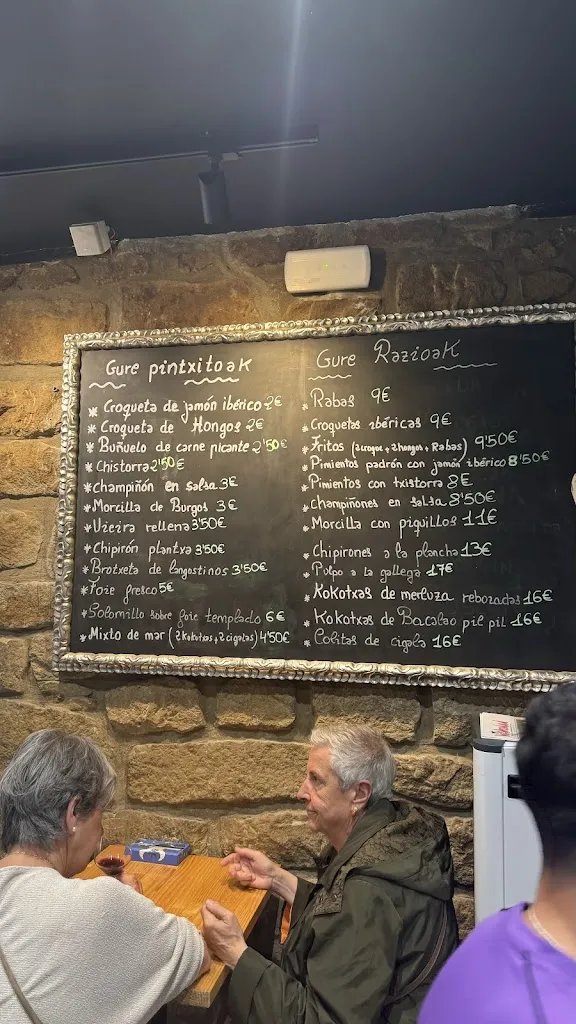 Gure pintxitoak
* Croqueta de jamón ibérico 2€
* Croqueta de Hongos 2€
* Buñuelo de carne picante 2'50€
* Chistorra 2'50€
* Champiñón en salsa 3€
* Morcilla de Burgos 3€
* Vieira rellena 3'50€
* Chipirón plantxa 3'50€
* Brotxeta de langostinos 3'50€
* Foie fresco 5€
* Solomillo sobre foie templado 6€
* Mixto de mar (2 kokotxas + 2 cigalas) 4'50€
Gure Razioak
* Rabas 9€
* Croquetas ibéricas 9€
* Fritos (2 croqus + 2 hongos + Rabas) 9'50€
* Pimientos padrón con jamón ibérico 8'50€
* Pimientos con txistorra 8€
* Champiñones en salsa 8'50€
* Morcilla con piquillos 11€
* Chipirones a la plancha 13€
* Pulpo a la gallega 17€
* Kokotxas de merluza rebozadas 16€
* Kokotxas de Bacalao pil pil 16€
* Colitas de cigala 16€